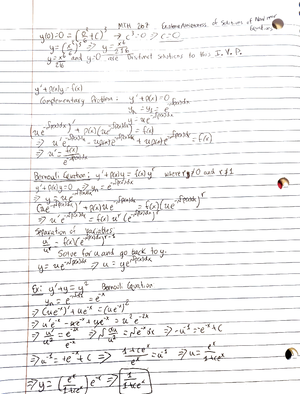 MTH 207 Existence/Uniqueness of Solutions of Nonlinear Equations
y(0)=0 = (x²/6 + C)³ → C³=0 → C=0
y = (x²/6)³ ⇒ y = x⁶/216
y = x⁶/216 and y=0 are Distinct solutions to this I.V.P.
y' + p(x)y = f(x)
Complementary Problem: y' + p(x)y = 0
y₁ = e^(-∫p(x)dx)
y = ue^(-∫p(x)dx)
(ue^(-∫p(x)dx))' + p(x)(ue^(-∫p(x)dx)) = f(x)
⇒ u'e^(-∫p(x)dx) - up(x)e^(-∫p(x)dx) + up(x)e^(-∫p(x)dx) = f(x)
⇒ u' = f(x)/e^(-∫p(x)dx)
Bernoulli Equation: y' + p(x)y = f(x)y^r where r≠0 and r≠1
y' + p(x)y = 0 ⇒ y₁ = e^(-∫p(x)dx)
⇒ y = ue^(-∫p(x)dx)
(ue^(-∫p(x)dx))' + p(x)ue^(-∫p(x)dx) = f(x)(ue^(-∫p(x)dx))^r
⇒ u'e^(-∫p(x)dx) = f(x)u^r(e^(-∫p(x)dx))^r
Separation of Variables
u'/u^r = f(x)(e^(-∫p(x)dx))^(r-1)
Solve for u and go back to y.
y = ue^(-∫p(x)dx) ⇒ u = ye^(∫p(x)dx)
Ex: y' + y = y² Bernoulli Equation
y₁ = e^(-∫dx) = e^(-x)
⇒ (ue^(-x))' + ue^(-x) = (ue^(-x))²
⇒ u'e^(-x) - ue^(-x) + ue^(-x) = u²e^(-2x)
⇒ u'/u² = e^(-2x)/e^(-x) ⇒ ∫du/u² = ∫e^(-x)dx ⇒ -u^(-1) = -e^(-x) + C
⇒ u^(-1) = e^(-x) + C ⇒ (1+ce^x)/e^x = u^(-1) ⇒ u = e^x/(1+ce^x)
⇒ y = (e^x/(1+ce^x))e^(-x) ⇒ 1/(1+ce^x)